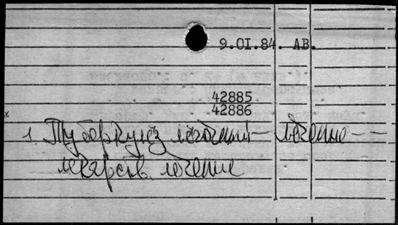 9.01.84. АВ.
42885
42886
1. Туберкулез легочный — лечение —
лекарств. лечение